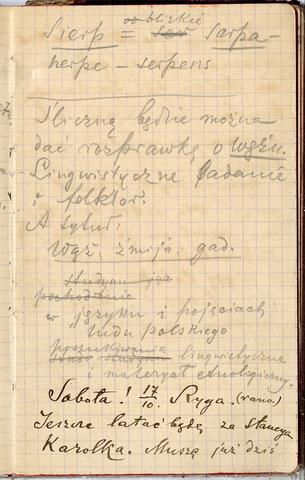 od blizkie
Sierp = sarpa-
herpe - serpens
Śliczną będzie można
dać rozprawkę o wężu.
Lingwistyczne badanie
i folklor.
A tytuł:
Wąż, żmija. gad.
studyum jez
pochodzenie
w języku i pojęciach
ludu polskiego
poszukiwania
studyum lingwistyczne
i materyał etnologiczny.
Sobota! 17/10. Ryga. (rano.)
Jeszcze latać będę za stancyą
Karolka. Muszę już dziś